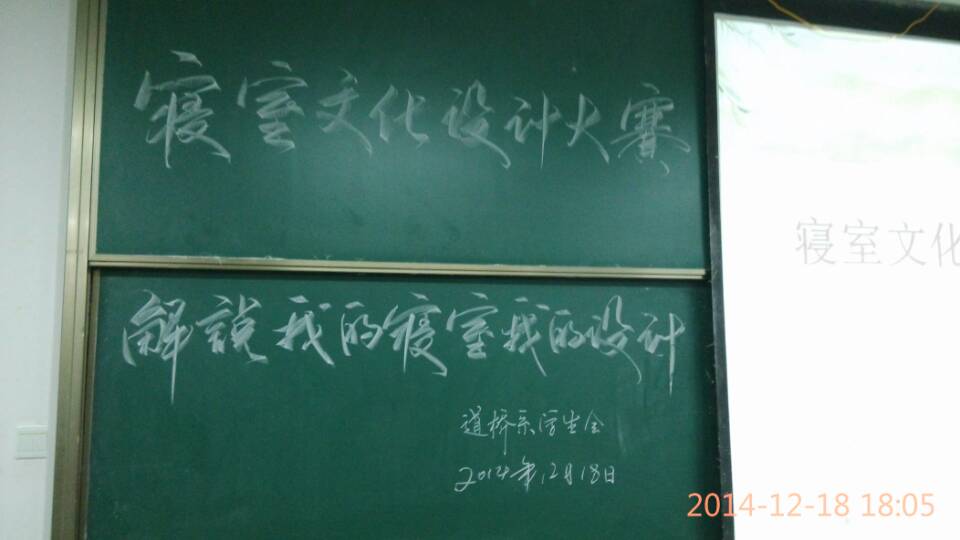 寝室文化设计大赛
寝室文化
解說我的寝室我的设计
道桥系学生会
2014年12月18日
2014-12-18 18:05